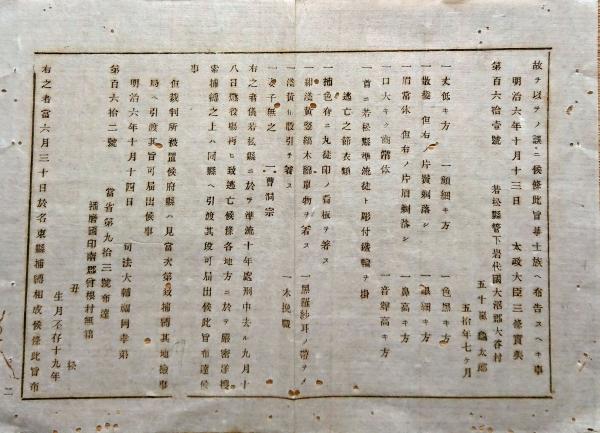 故ヲ以テノ謨ニ候條此旨華士族ヘ布告スヘキ事
明治六年十月十三日 太政大臣三條實美
第百六拾壹號 若松縣管下岩代國大沼郡大谷村
五十嵐 太郎
五拾年七ヶ月
一丈低キ方 一顏細キ方 一色黑キ方
一散髮 但右ノ片鬢剃落シ 一眼細キ方
一眉常体 但右ノ片眉剃落シ 一鼻高キ方
一口大キク齒常体 一音聲高キ方
一首ニ若松縣準流徒ト彫付鐵輪ヲ掛
逃亡之節衣類
一柿色春ニ丸徒印ノ看板ヲ着ス
一紺淺黃竪縞木綿單物ヲ着ス 一黑羅紗耳ノ帶ヲメ
一淺黃 股引ヲ着ス 一木挽職
一妻子無之 一曹洞宗
右之者儀若松縣ニ於テ準流十年處刑中去ル九月十
八日懲役場再ヒ致逃亡候條各地方ニ於テ嚴密詳搜
索捕縛之上ハ同縣ヘ引渡其段可屆出候此旨布達候
事
但裁判所被置候府縣ハ見當次第致捕縛其地檢事
局ヘ引渡其旨可屆出候事
明治六年十月十四日 司法大輔福岡孝弟
第百六拾二號 當省第九拾三號布達
播磨國印南郡曾根村無籍
丑松
生月不存十九年
右之者當六月三十日於名東縣捕縛相成候條此旨布
二